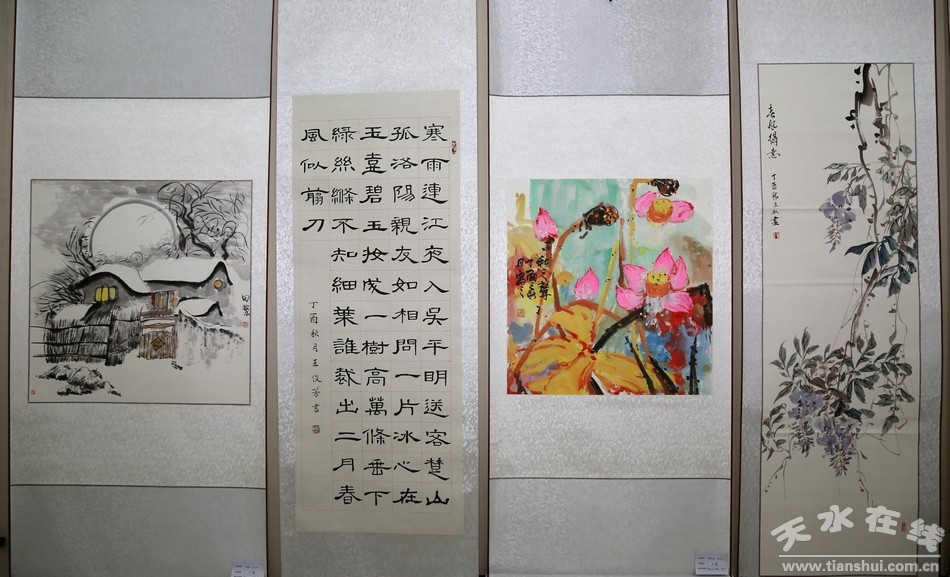 寒雨連江夜入吳平明送客楚山
孤洛陽親友如相問一片冰心在
玉壺碧玉妝成一樹高萬條垂下
綠絲縧不知細葉誰裁出二月春
風似剪刀
丁酉秋月王俊芳書
春風得意
丁酉
天水在线
www.tianshui.com.cn